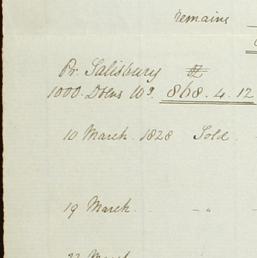 remains
Pr. Salisbury
1000. Dolls Wd. 868. 4. 12
10 March. 1828 Sold.
19 March. - "
22 March